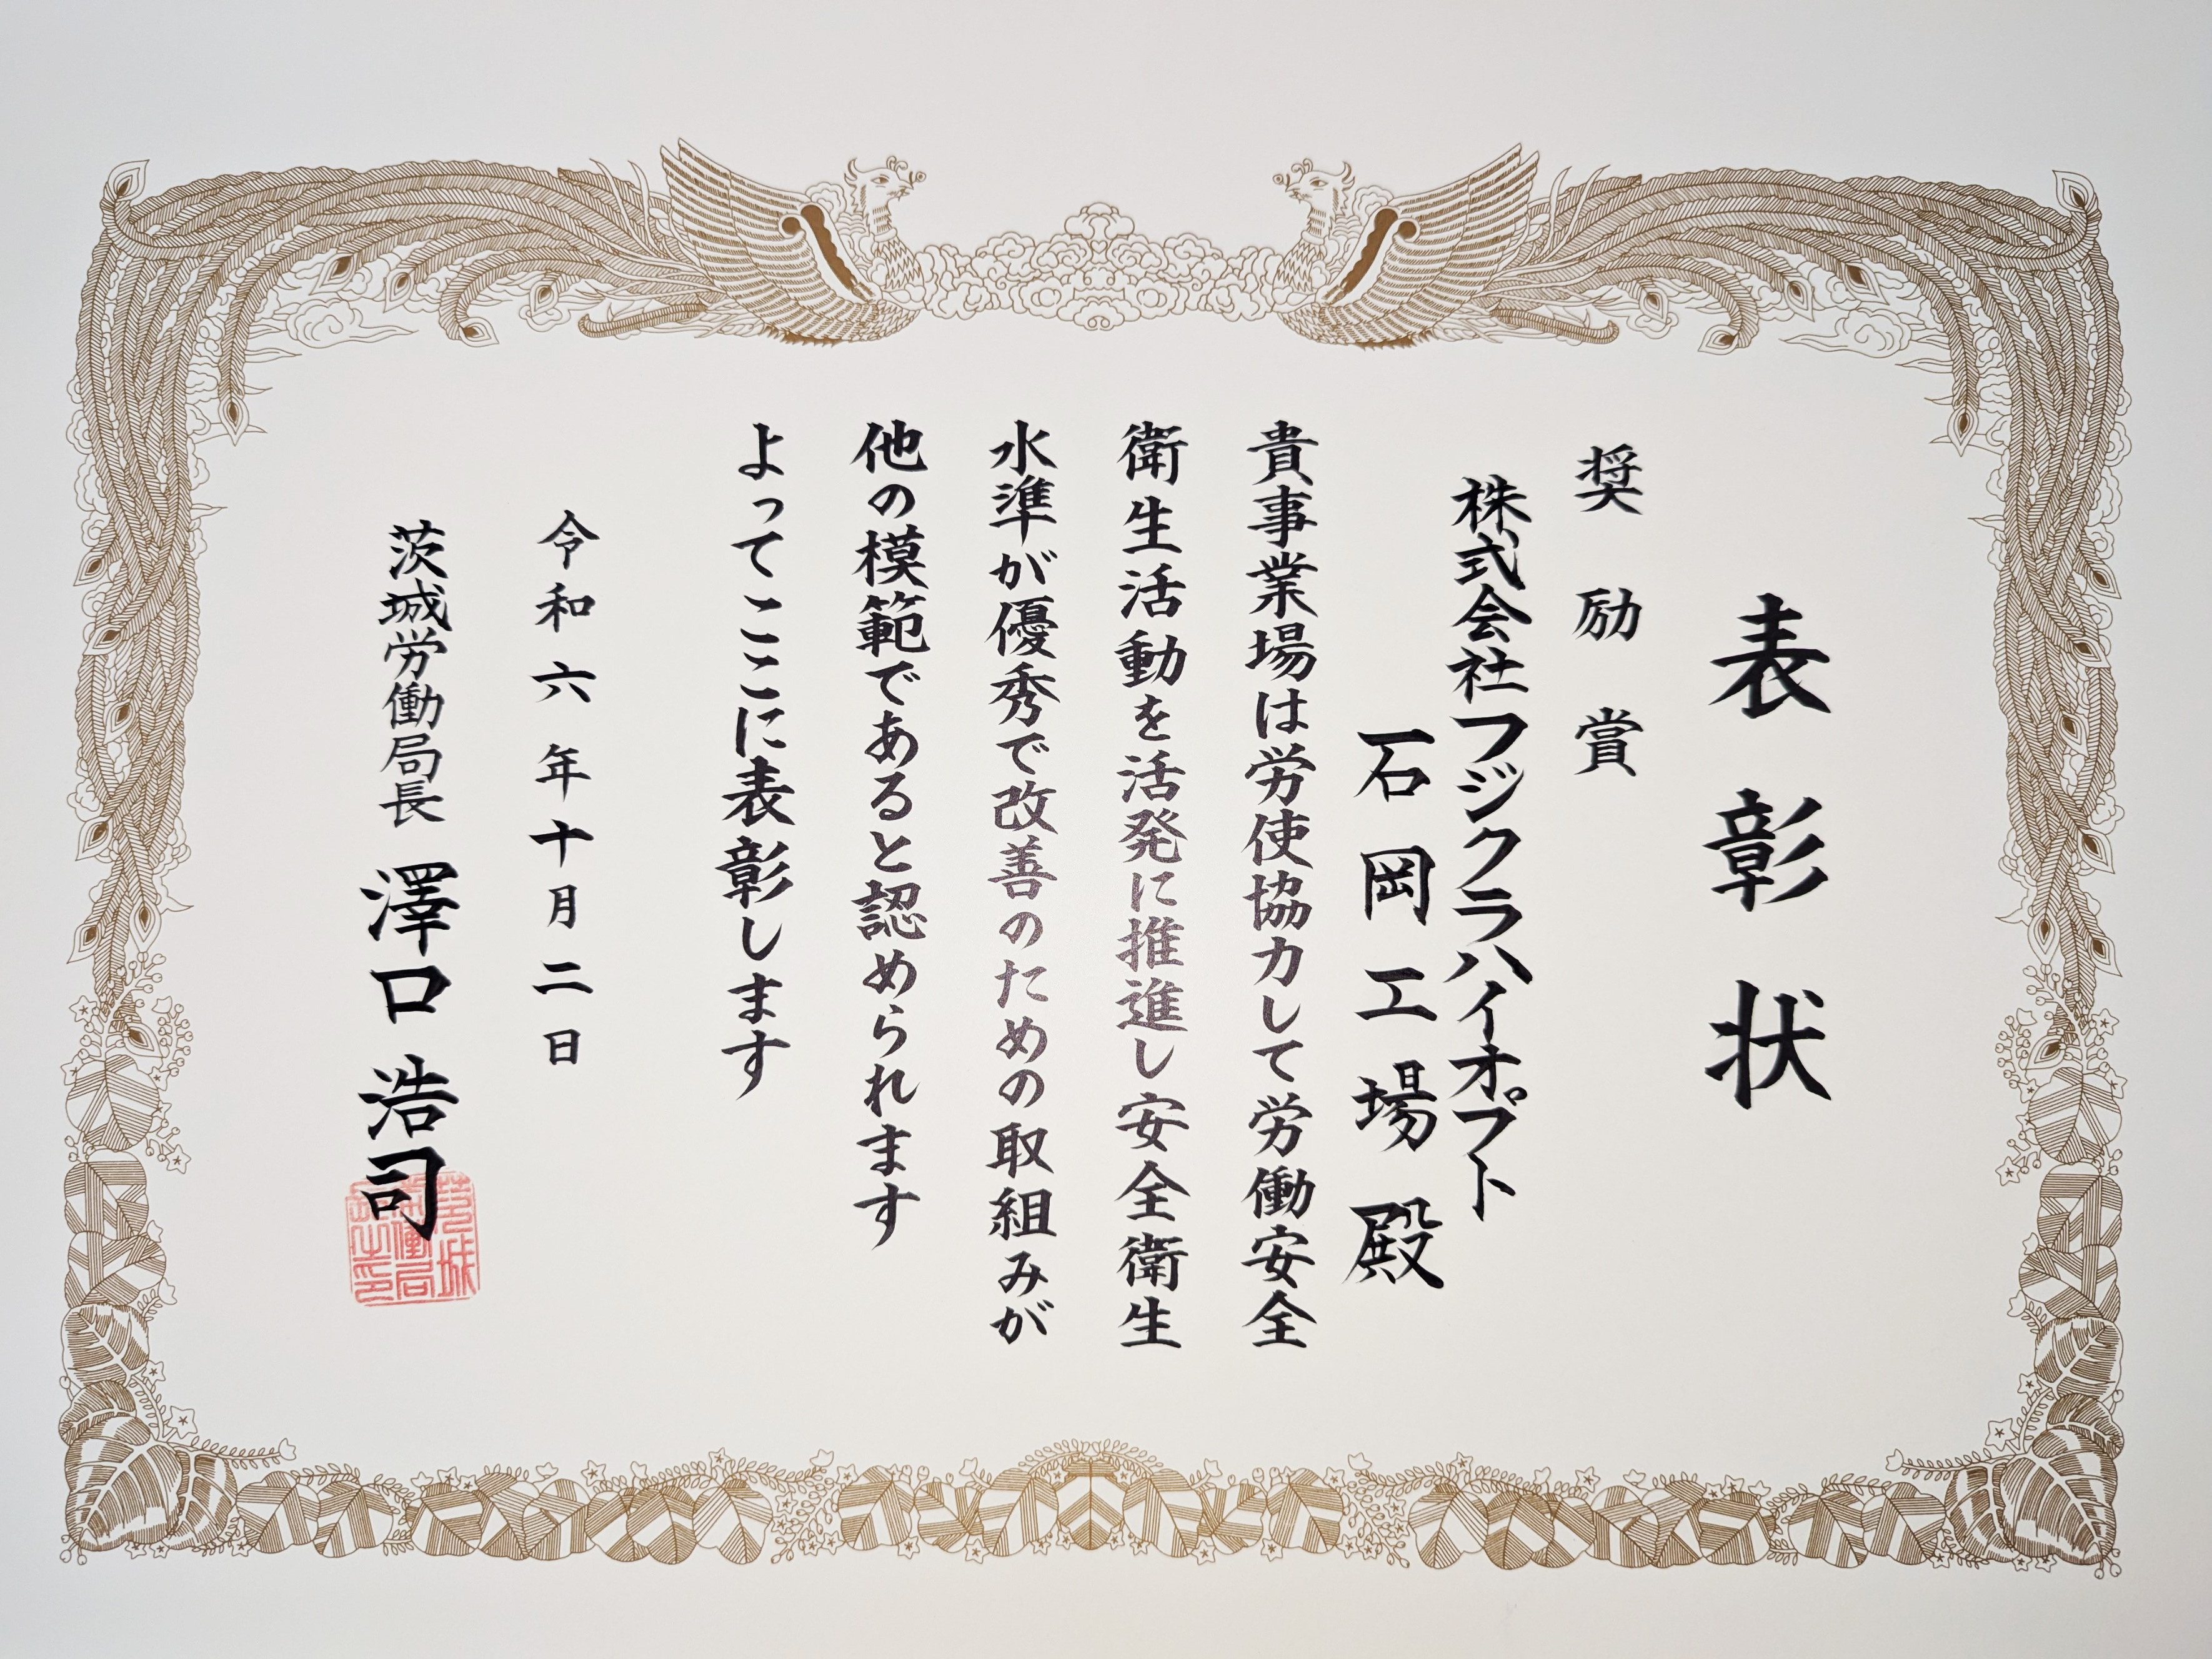 表彰状
奨励賞
株式会社フジクラハイオプト
石岡工場殿
貴事業場は労使協力して労働安全
衛生活動を活発に推進し安全衛生
水準が優秀で改善のための取組みが
他の模範であると認められます
よってここに表彰します
令和六年十月二日
茨城労働局長 澤口浩司
茨城
労働局
長之印